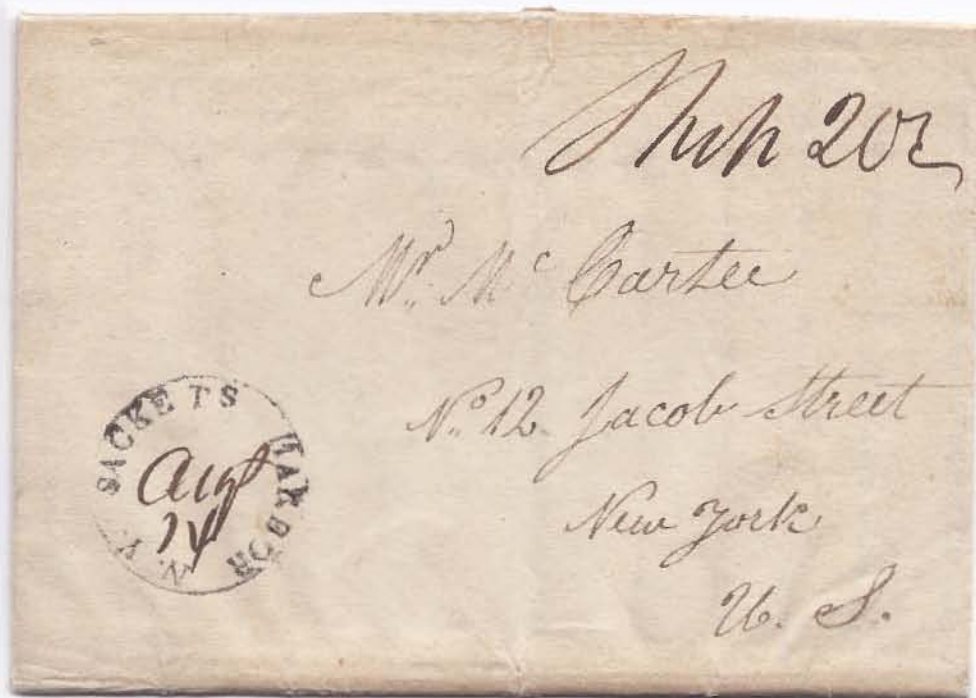 Ship 20½
Mr. Mc Cartee
No. 12. Jacob Street
New York
U. S.
SACKETS HARBOR N.Y.
Aug
14